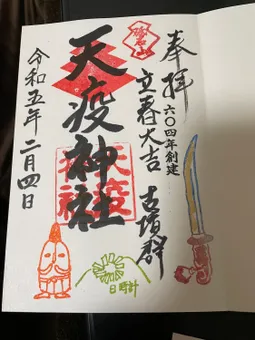 奉拝
六〇四年創建
立春大吉
古墳群
天疫神社
令和五年二月四日
日時計